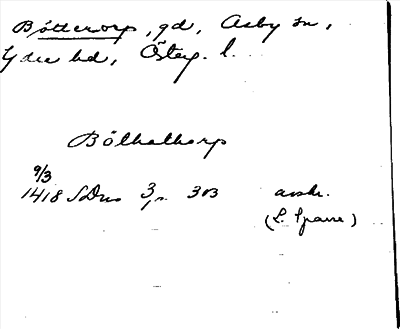 Böttorp, gd, Asby sn,
Ydre hd, Österg. l.
Bölhathorp
9/3
1418 SDns 3, s. 303 avskr.
(L. Sparre)